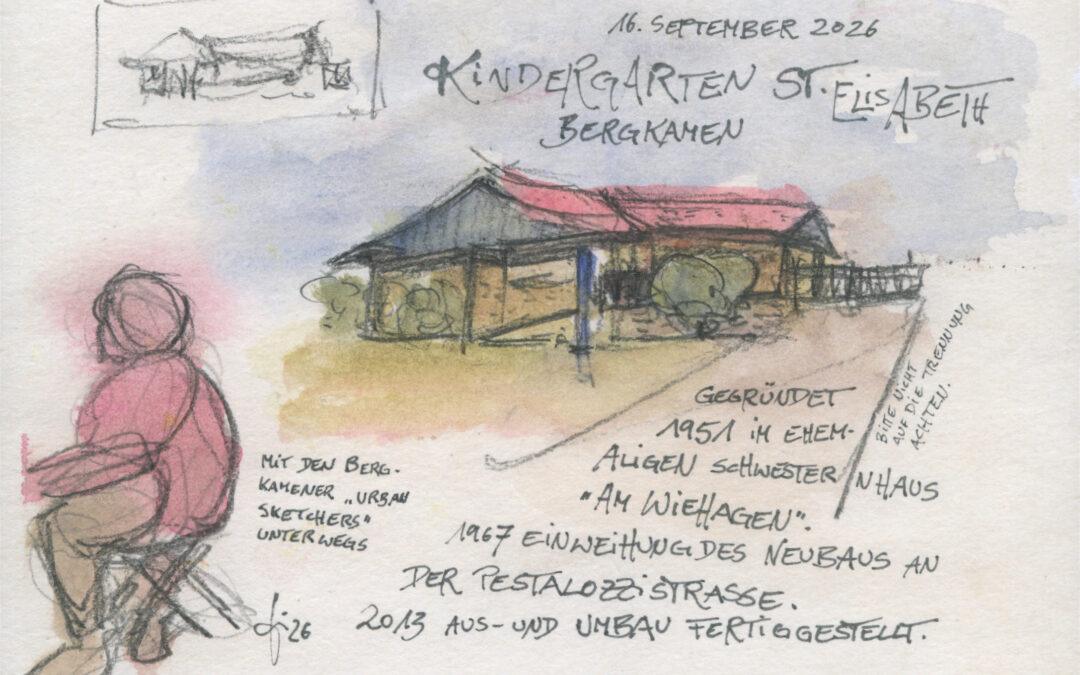 16. SEPTEMBER 2026
KINDERGARTEN ST. ELISABETH
BERGKAMEN
BITTE NICHT
AUF DIE TRENNUNG
ACHTEN.
GEGRÜNDET
1951 IM EHEM-
ALIGEN SCHWESTER/NHAUS
"AM WIEHAGEN".
1967 EINWEIHUNG DES NEUBAUS AN
DER PESTALOZZISTRASSE.
2013 AUS- UND UMBAU FERTIGGESTELLT.
MIT DEN BERG-
KAMENER „URBAN
SKETCHERS"
UNTERWEGS
26